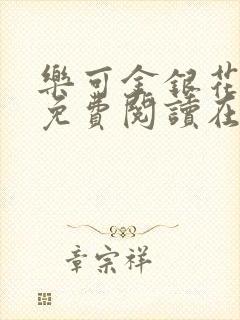 樂可金銀花
免費閱讀在
章宗祥